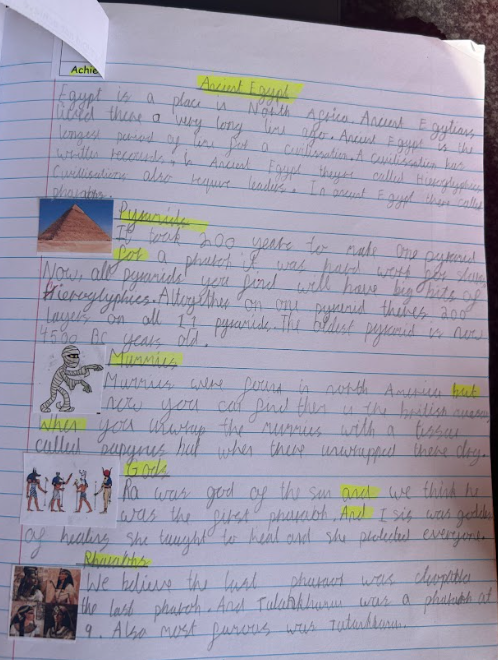 Achie
Ancient Egypt
Egypt is a place in North Africa. Ancient Egytians
lived there a very long time ago. Ancient Egypt is the
longest period of time for a civilisation. A civilisation has
written records, in Ancient Egypt theyre called Hieroglyphics
Civilisations also require leaders. In ancient Egypt there called
pharaohs.
Pyramids
It took 200 years to make one pyramid
for a pharaoh it was hard work for slaves
Now, all pyramids you find will have big bits of
Hieroglyphics. Altogether on one pyramid theres 200
layers on all 11 pyramids. The oldest pyramid is now
4500 BC years old.
Mummies
Mummies were found in north America but
now you can find them in the british museum
When you unwrap the mummies with a tissue
called papyrus but when there unwrapped there dry.
Gods
Ra was god of the sun and we think he
was the first pharaoh. And Isis was goddess
of healing she taught to heal and she protected everyone.
Pharaohs
We believe the last pharaoh was cleopatra
the last pharoh. And Tutankhamun was a pharaoh at
9. Also most famous was Tutankhamun.